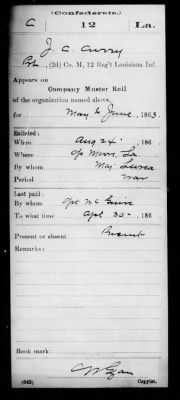 (Confederate.)
C 12 La.
J. C. Curry
(2d) Co. M, 12 Reg't Louisiana Inf.
Appears on
Company Muster Roll
of the organization named above,
for May & June, 1863.
Enlisted:
When Aug 24 186
Where Cp Moore, La
By whom Maj
Period War
Last paid:
By whom Cpt. McGuire
To what time Apl 30 186
Present or absent Present
Remarks:
Book mark:
(642) Copyist.